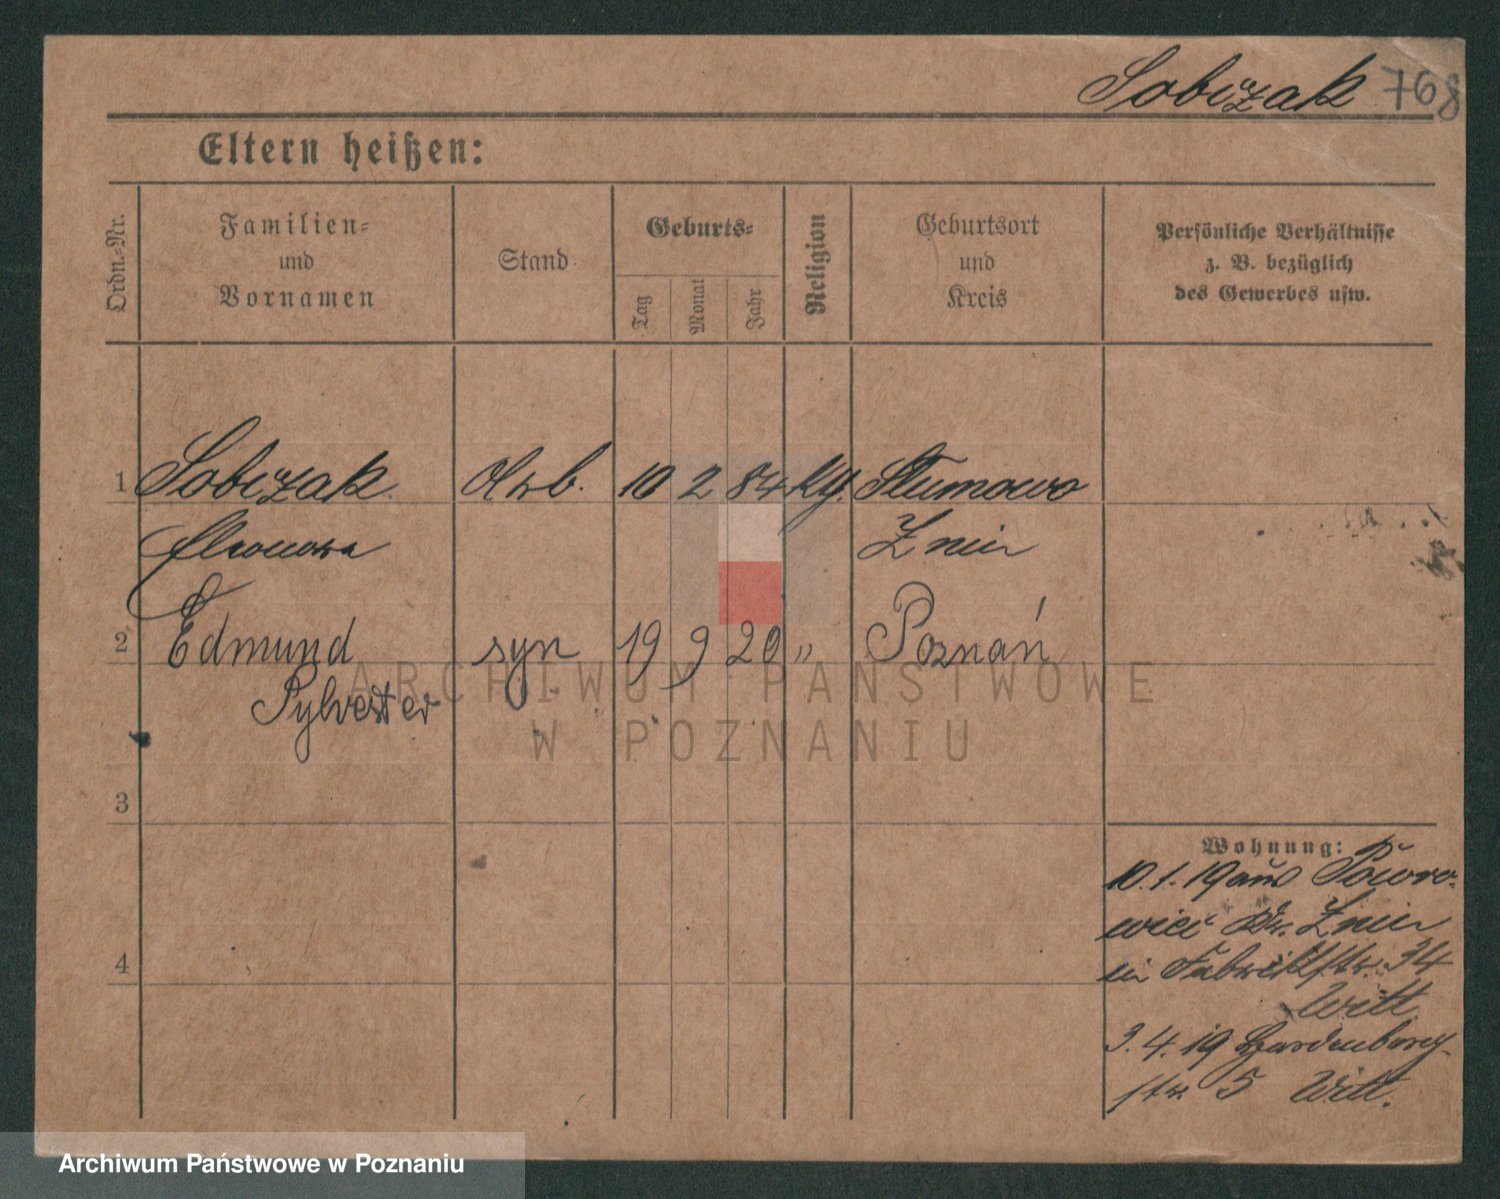 Sobczak 768
Eltern heißen:
Ordn.-Nr.
Familien-
und
Vornamen
Stand
Geburts-
Tag
Monat
Jahr
Religion
Geburtsort
und
Kreis
Persönliche Verhältnisse
z. B. bezüglich
des Gewerbes usw.
1 Sobczak Arb. 10 2 84 Słumowo
Eleonora Znin
2 Edmund syn 19 9 20 " Poznań
Sylvester
3
4
Wohnung:
10.1.19 aus
Kr. Znin
in Fabrikstr. 34
Witt.
3.4.19 Hardenberg-
str 5 Witt.
ARCHIWUM PAŃSTWOWE
W POZNANIU
Archiwum Państwowe w Poznaniu